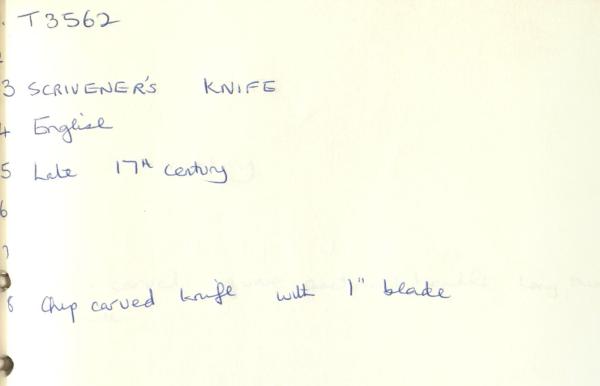 . T3562
3 SCRIVENER'S KNIFE
4 English
5 Late 17th century
6
7
8 Chip carved knife with 1" blade